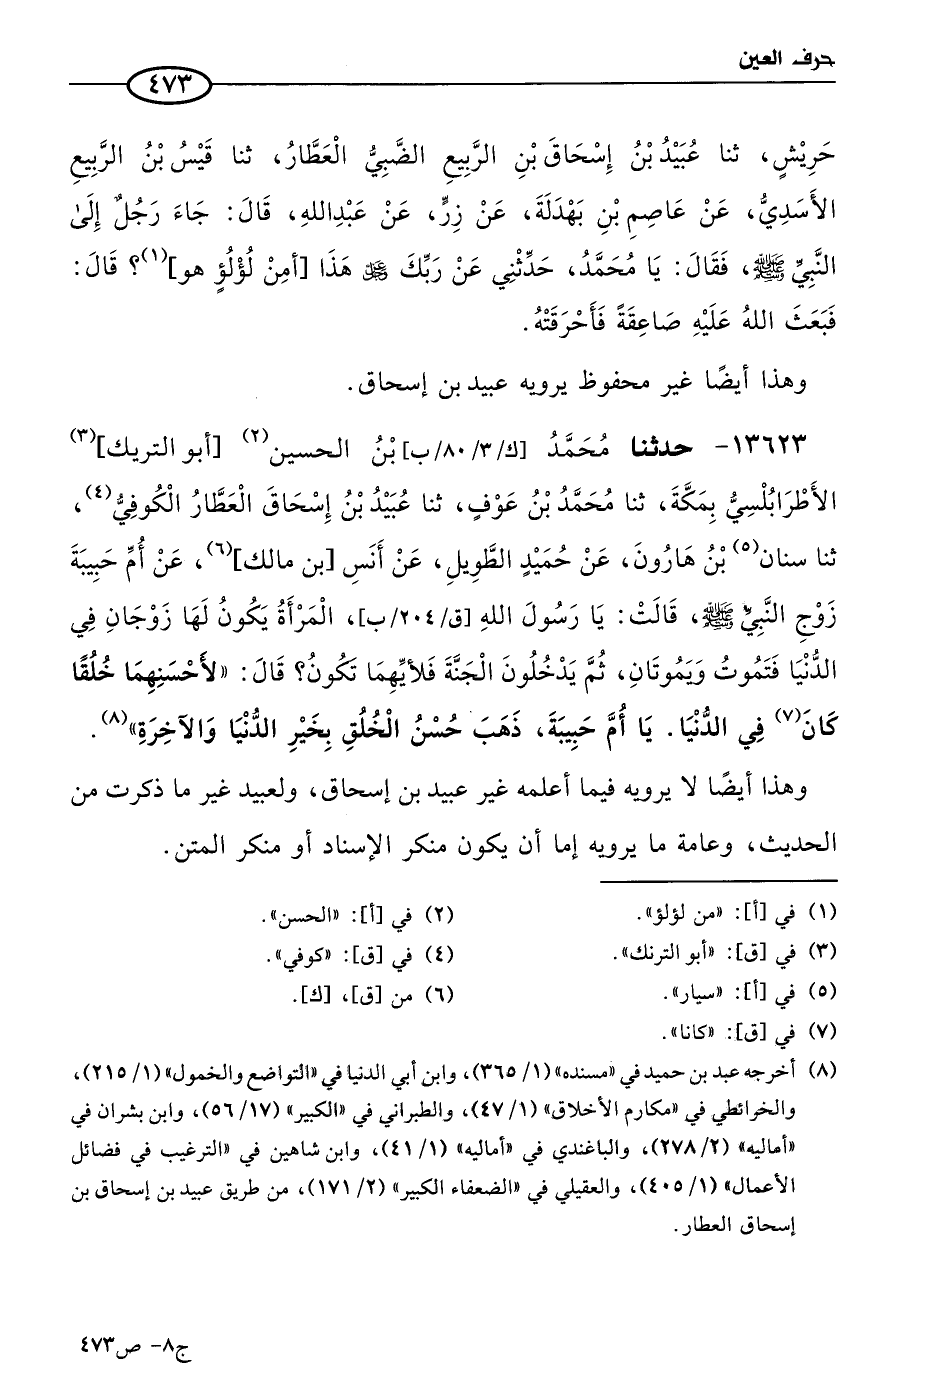 حرف العين
٤٧٣
حَرِيْشٍ، ثنا عُبَيْدُ بْنُ إِسْحَاقَ بْنِ الرَّبِيعِ الضَّبِيُّ الْعَطَّارُ، ثنا قَيْسُ بْنُ الرَّبِيعِ
الأَسَدِيُّ، عَنْ عَاصِمِ بْنِ بَهْدَلَةَ، عَنْ زِرٍّ، عَنْ عَبْدِاللهِ، قَالَ: جَاءَ رَجُلٌ إِلَى
النَّبِيِّ ﷺ، فَقَالَ: يَا مُحَمَّدُ، حَدِّثْنِي عَنْ رَبِّكَ ﷻ هَذَا [أمِنْ لُؤْلُؤٍ هو](١)؟ قَالَ:
فَبَعَثَ اللهُ عَلَيْهِ صَاعِقَةً فَأَحْرَقَتْهُ.
وهذا أيضًا غير محفوظ يرويه عبيد بن إسحاق.
١٣٦٢٣- حدثنا مُحَمَّدُ [ك/٣/ ٨٠/ب] بْنُ الحسين(٢) [أبو التريك](٣)
الأَطْرَابُلْسِيُّ بِمَكَّةَ، ثنا مُحَمَّدُ بْنُ عَوْفٍ، ثنا عُبَيْدُ بْنُ إِسْحَاقَ الْعَطَّارُ الْكُوفِيُّ(٤)،
ثنا سنان(٥) بْنُ هَارُونَ، عَنْ حُمَيْدٍ الطَّوِيلِ، عَنْ أَنَسِ [بن مالك](٦)، عَنْ أُمِّ حَبِيبَةَ
زَوْجِ النَّبِيِّ ﷺ، قَالَتْ: يَا رَسُولَ اللهِ [ق/٢٠٤/ب]، الْمَرْأَةُ يَكُونُ لَهَا زَوْجَانِ فِي
الدُّنْيَا فَتَمُوتُ وَيَمُوتَانِ، ثُمَّ يَدْخُلُونَ الْجَنَّةَ فَلأَيِّهِمَا تَكُونُ؟ قَالَ: «لأَحْسَنِهِمَا خُلُقًا
كَانَ(٧) فِي الدُّنْيَا. يَا أُمَّ حَبِيبَةَ، ذَهَبَ حُسْنُ الْخُلُقِ بِخَيْرِ الدُّنْيَا وَالآخِرَةِ»(٨).
وهذا أيضًا لا يرويه فيما أعلمه غير عبيد بن إسحاق، ولعبيد غير ما ذكرت من
الحديث، وعامة ما يرويه إما أن يكون منكر الإسناد أو منكر المتن.
(١) في [أ]: «من لؤلؤ». (٢) في [أ]: «الحسن».
(٣) في [ق]: «أبو الترنك». (٤) في [ق]: «كوفي».
(٥) في [أ]: «سيار». (٦) من [ق]، [ك].
(٧) في [ق]: «كانا».
(٨) أخرجه عبد بن حميد في «مسنده» (١/ ٣٦٥)، وابن أبي الدنيا في «التواضع والخمول» (١/ ٢١٥)،
والخرائطي في «مكارم الأخلاق» (١/ ٤٧)، والطبراني في «الكبير» (١٧/ ٥٦)، وابن بشران في
«أماليه» (٢/ ٢٧٨)، والباغندي في «أماليه» (١/ ٤١)، وابن شاهين في «الترغيب في فضائل
الأعمال» (١/ ٤٠٥)، والعقيلي في «الضعفاء الكبير» (٢/ ١٧١)، من طريق عبيد بن إسحاق بن
إسحاق العطار.
ج٨- ص٤٧٣